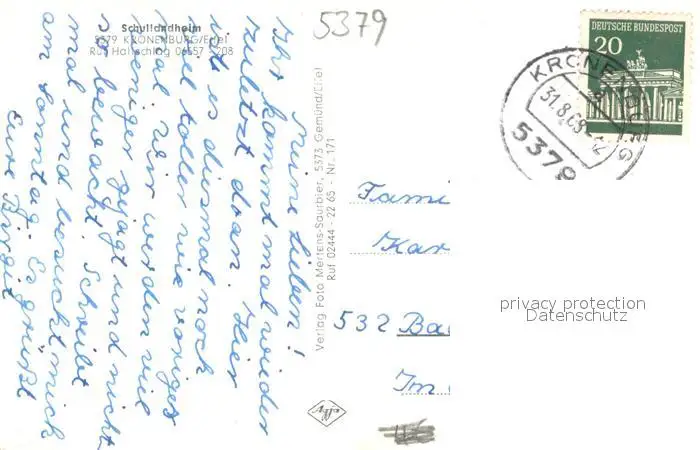 5379
Schullandheim
5379 KRONENBURG/Eifel
Ruf Hallschlag 06557 - 208
Meine Lieben!
Ihr kommt mal wieder
zuletzt dran. Hier
ist es diesmal noch
viel toller wie voriges
Mal. Wir werden viel
weniger gejagt und nicht
so bewacht. Schreibt
mal und besucht mich
am Sonntag. Es grüßt
Eure Birgit
Verlag Foto Mertens-Saurbier, 5373 Gemünd/Eifel
Ruf 02444 - 22 65 - Nr. 171
Agfa
DEUTSCHE BUNDESPOST
20
KRONENBURG
31.8.68-12
5379
Fami
Kar
532 Ba
Im
privacy protection
Datenschutz